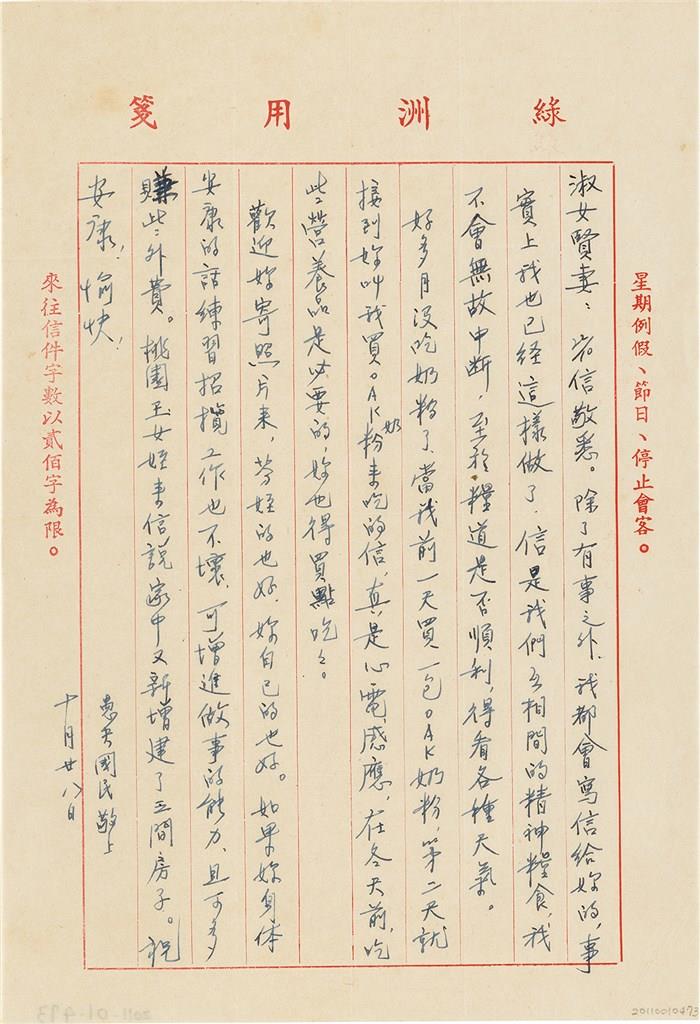 綠洲用箋
星期例假、節日、停止會客。
淑女賢妻：來信敬悉。除了有事之外，我都會寫信給妳的，事
實上我也已經這樣做了，信是我們互相間的精神糧食，我
不會無故中斷，至於糧道是否順利，得看各種天氣。
好多月沒吃奶粉了，當我前一天買一包OAK奶粉，第二天就
接到妳叫我買OAK奶粉來吃的信，真是心電感應，在冬天前，吃
些營養品是必要的，妳也得買點吃吃。
歡迎妳寄照片來，芬姪的也好，妳自己的也好。如果妳身体
安康的話練習招攬工作也不壞，可增進做事的能力，且可多
賺些外費。桃園玉女姪來信說家中又新增建了三間房子。祝
安康！愉快！
愚夫國民敬上
十月廿八日
來往信件字數以貳佰字為限。
2011-01-473
20110010473